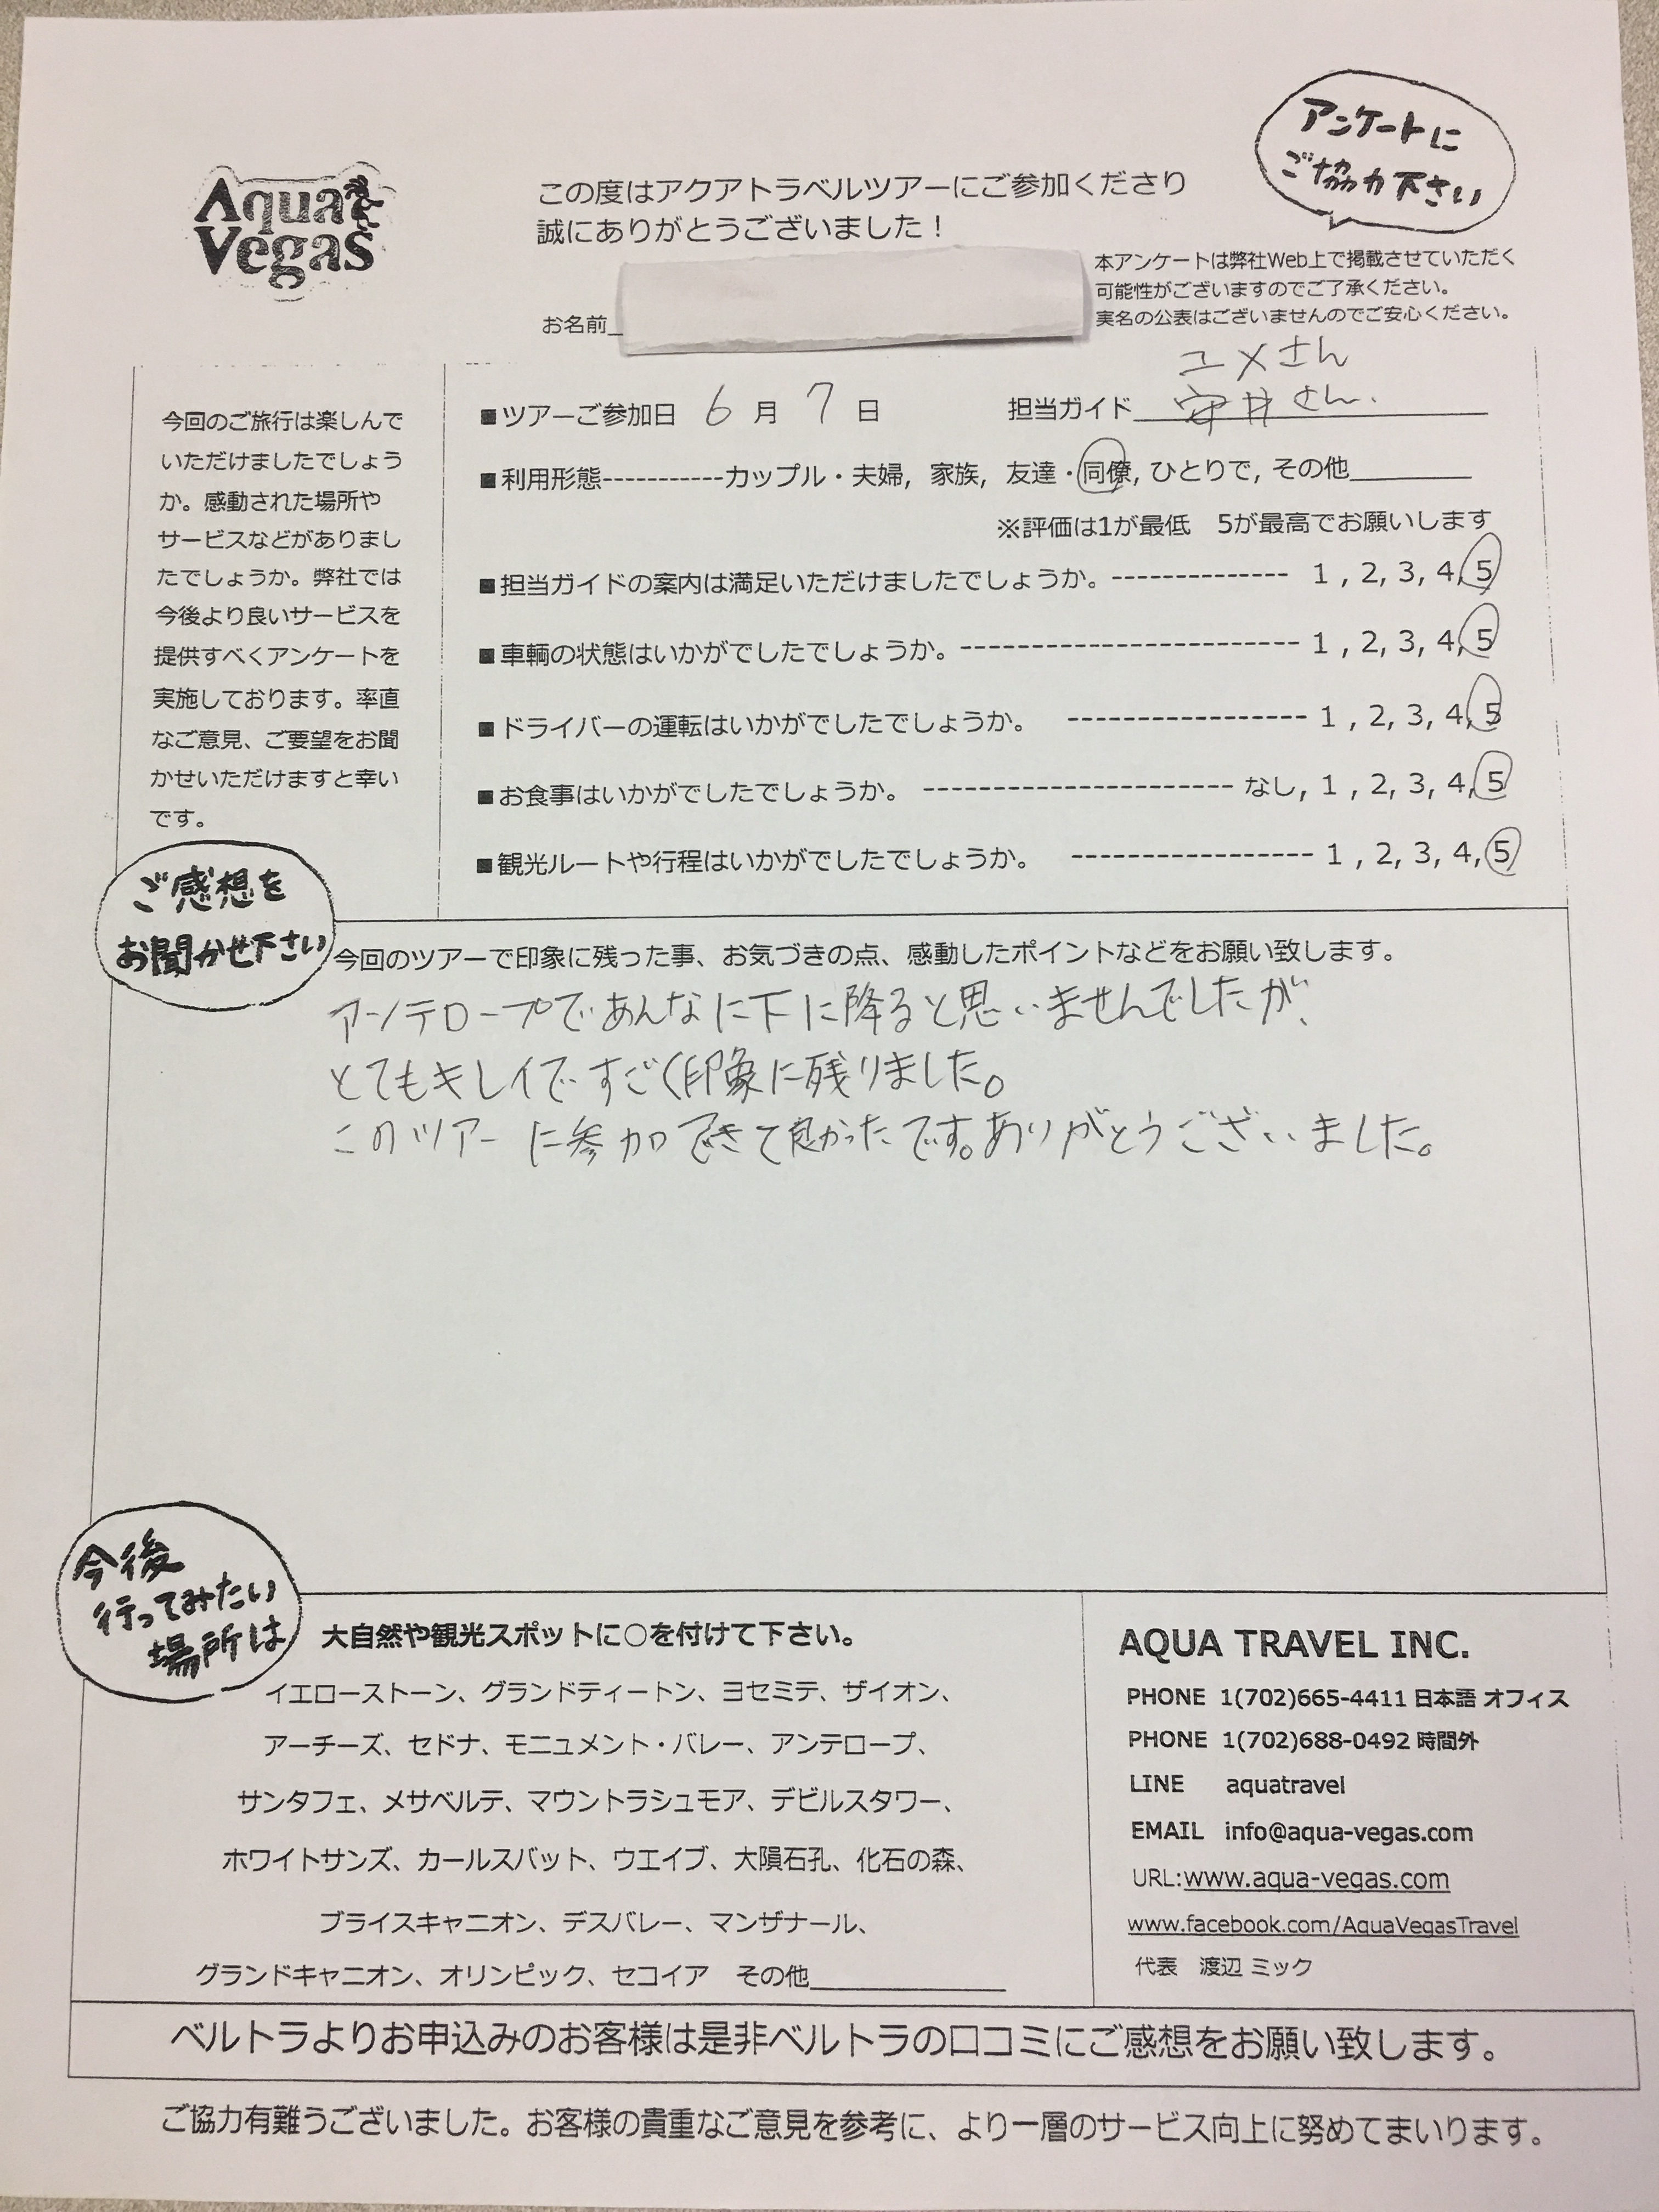 アンケートに
ご協力下さい
Aqua
Vegas
この度はアクアトラベルツアーにご参加くださり
誠にありがとうございました！
本アンケートは弊社Web上で掲載させていただく
可能性がございますのでご了承ください。
実名の公表はございませんのでご安心ください。
お名前
今回のご旅行は楽しんで
いただけましたでしょう
か。感動された場所や
サービスなどがありまし
たでしょうか。弊社では
今後より良いサービスを
提供すべくアンケートを
実施しております。率直
なご意見、ご要望をお聞
かせいただけますと幸い
です。
ユメさん
■ツアーご参加日 6月7日 担当ガイド 安井さん.
■利用形態-----------カップル・夫婦, 家族, 友達・同僚, ひとりで, その他______
※評価は1が最低 5が最高でお願いします
■担当ガイドの案内は満足いただけましたでしょうか。-------------- 1 , 2, 3, 4, 5
■車輌の状態はいかがでしたでしょうか。----------------------- 1 , 2, 3, 4, 5
■ドライバーの運転はいかがでしたでしょうか。 ----------------- 1 , 2, 3, 4, 5
■お食事はいかがでしたでしょうか。 ---------------------- なし, 1 , 2, 3, 4, 5
■観光ルートや行程はいかがでしたでしょうか。 ----------------- 1 , 2, 3, 4, 5
ご感想を
お聞かせ下さい
今回のツアーで印象に残った事、お気づきの点、感動したポイントなどをお願い致します。
アンテロープであんなに下に降ると思いませんでしたが、
とてもキレイですごく印象に残りました。
このツアーに参加できて良かったです。ありがとうございました。
今後
行ってみたい
場所は
大自然や観光スポットに○を付けて下さい。
イエローストーン、グランドティートン、ヨセミテ、ザイオン、
アーチーズ、セドナ、モニュメント・バレー、アンテロープ、
サンタフェ、メサベルテ、マウントラシュモア、デビルスタワー、
ホワイトサンズ、カールスバット、ウエイブ、大隕石孔、化石の森、
ブライスキャニオン、デスバレー、マンザナール、
グランドキャニオン、オリンピック、セコイア その他__________
AQUA TRAVEL INC.
PHONE 1(702)665-4411 日本語 オフィス
PHONE 1(702)688-0492 時間外
LINE aquatravel
EMAIL info@aqua-vegas.com
URL:www.aqua-vegas.com
www.facebook.com/AquaVegasTravel
代表 渡辺 ミック
ベルトラよりお申込みのお客様は是非ベルトラの口コミにご感想をお願い致します。
ご協力有難うございました。お客様の貴重なご意見を参考に、より一層のサービス向上に努めてまいります。